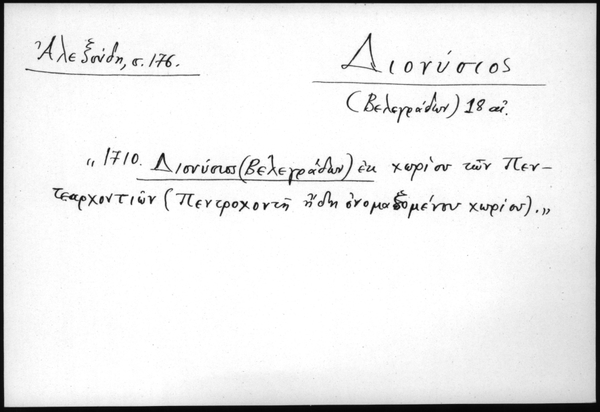 Ἀλεξούδη, σ. 176.
Διονύσιος
(Βελεγράδων) 18 αἰ.
„1710. Διονύσιος (Βελεγράδων) ἐκ χωρίου τῶν Πεν-
τεαρχοντιῶν (Πεντροχοντῆ ἤδη ὀνομαζομένου χωρίου).„